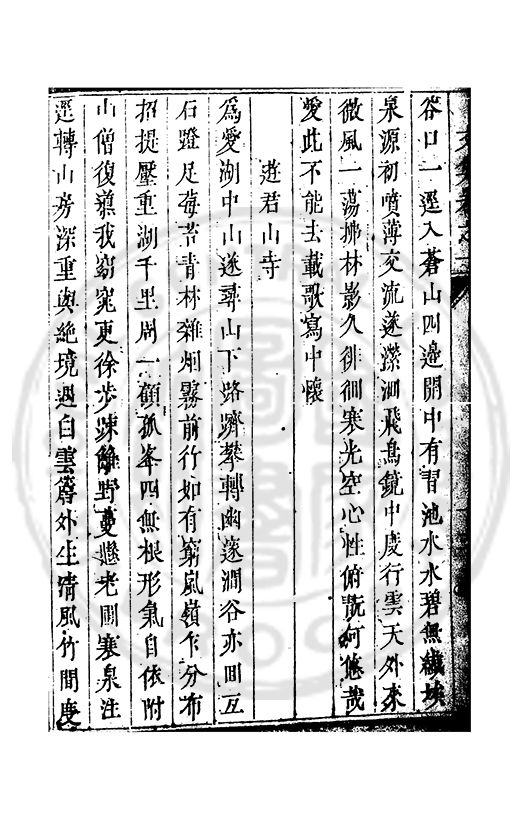 谷口一逕入蒼山四邊開中有習池水水碧無纎埃
泉源初噴薄交流遂濴洄飛鳥鏡中度行雲天外來
微風一蕩拂林影久徘徊寒光空心性俯翫何悠哉
愛此不能去載歌寫中懷
遊君山寺
為愛湖中山遂尋山下路躋攀轉幽邃澗谷亦回互
石蹬足莓苔青林雜烟霧前行如有窮嵐嶺乍分布
招提壓重湖千里周一顧孤峯四無根形氣自依附
山僧復導我窈窕更徐步疎籬野蔓懸老圃寒泉注
逕轉山房深重與絶境遇白雲簷外生清風竹間度